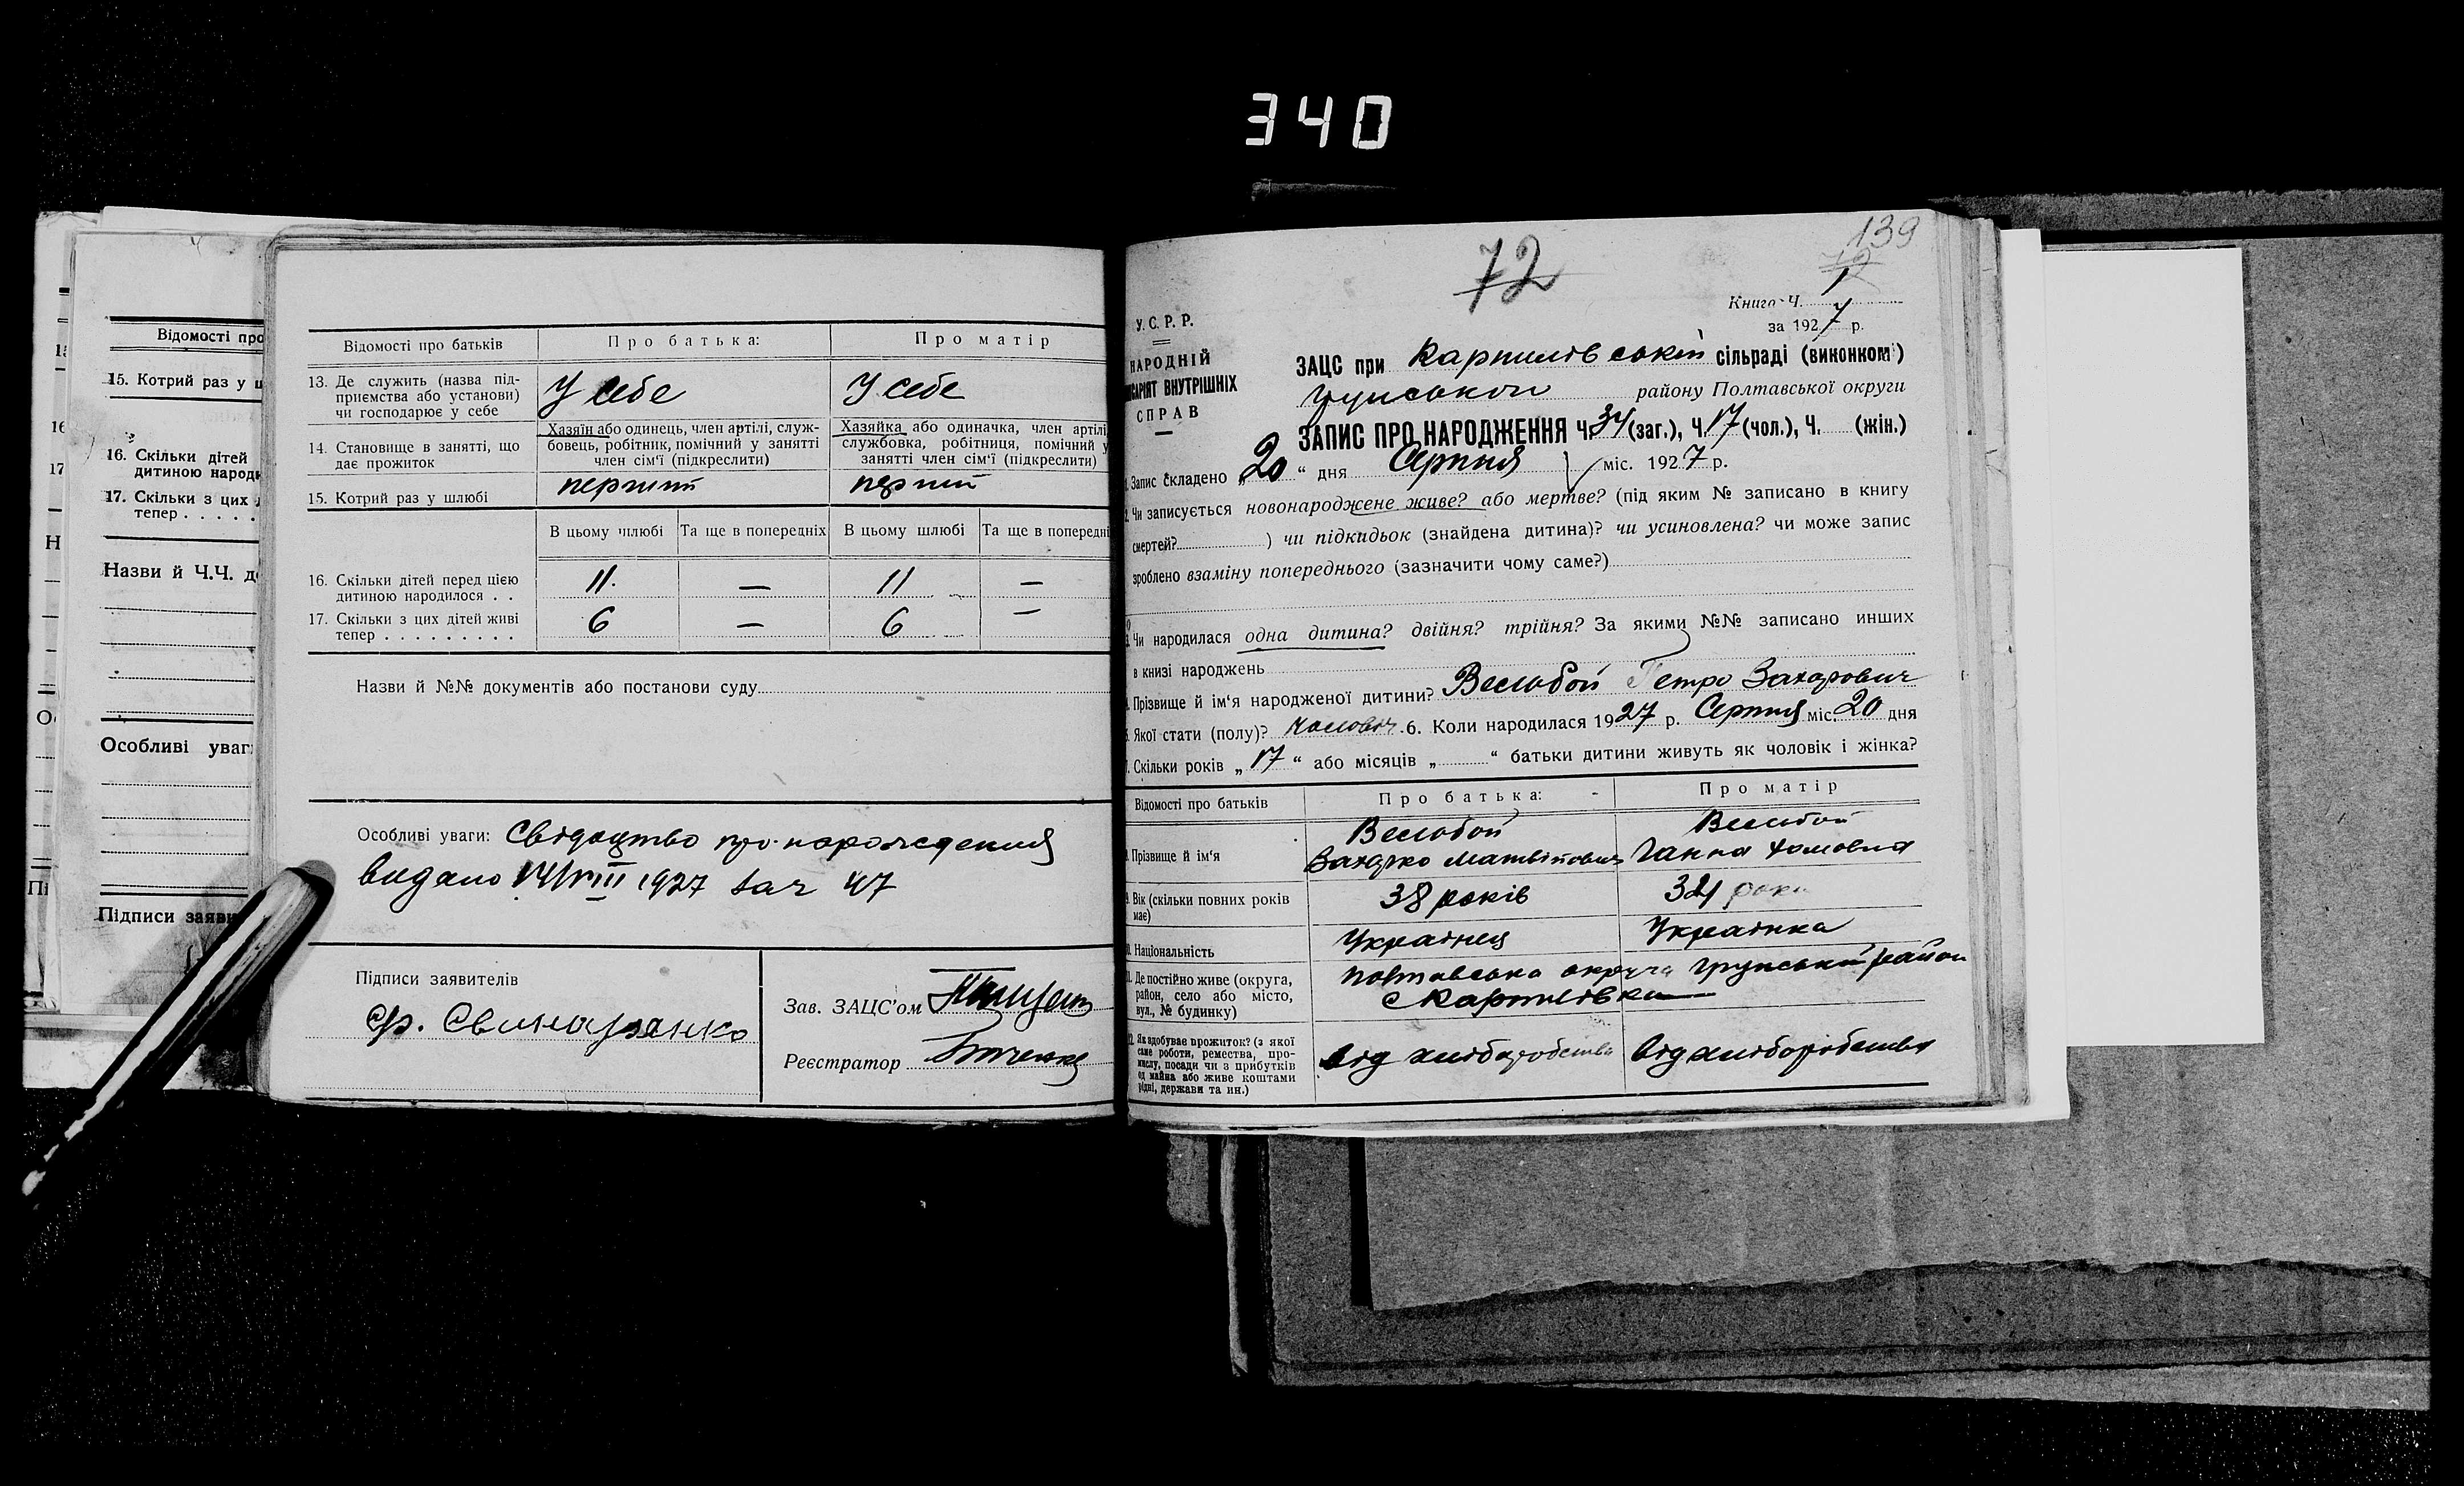 340
Відомості про
15. Котрий раз у ш
16. Скільки дітей
дитиною народи
17. Скільки з цих
тепер . . . . .
Назви й Ч.Ч. д
Особливі уваг
Підписи заяви
Відомості про батьків
Про батька:
Про матір
13. Де служить (назва під-
приємства або установи)
чи господарює у себе
У себе
У себе
14. Становище в занятті, що
дає прожиток
Хазяїн або одинець, член артілі, служ-
бовець, робітник, помічний у занятті
член сім'ї (підкреслити)
Хазяйка або одиначка, член артілі,
службовка, робітниця, помічний у
занятті член сім'ї (підкреслити)
15. Котрий раз у шлюбі
перший
перший
В цьому шлюбі
Та ще в попередніх
В цьому шлюбі
Та ще в попередні
16. Скільки дітей перед цією
дитиною народилося . .
11.
—
11
—
17. Скільки з цих дітей живі
тепер . . . . . . . . .
6
—
6
—
Назви й №№ документів або постанови суду
Особливі уваги: Свідоцтво про народження
видано 14/VIII 1927 за ч 47
Підписи заявителів
Зав. ЗАЦС'ом
Реєстратор
139
72
72
Книга Ч. 1
за 1927 р.
У. С. Р. Р.
НАРОДНІЙ
КОМІСАРІЯТ ВНУТРІШНІХ
СПРАВ
ЗАЦС при Карпилівській сільраді (виконкомі)
Грунського району Полтавської округи
ЗАПИС ПРО НАРОДЖЕННЯ Ч. 34 (заг.), Ч. 17 (чол.), Ч. (жін.)
1. Запис складено „20“ дня Серпня міс. 1927 р.
2. Чи записується новонароджене живе? або мертве? (під яким № записано в книгу
смертей? ) чи підкидьок (знайдена дитина)? чи усиновлена? чи може запис
зроблено взаміну попереднього (зазначити чому саме?)
3. Чи народилася одна дитина? двійня? трійня? За якими №№ записано инших
в книзі народжень
4. Прізвище й ім'я народженої дитини? Белобой Петро Захарович
5. Якої стати (полу)? чоловіч. 6. Коли народилася 1927 р. Серпня міс. 20 дня
7. Скільки років „17“ або місяців „ “ батьки дитини живуть як чоловік і жінка?
Відомості про батьків
Про батька:
Про матір
8. Прізвище й ім'я
Белобой
Захарко Матвійович
Белобой
Ганна Хомовна
9. Вік (скільки повних років
має)
38 років
34 роки
10. Національність
Українец
Українка
11. Де постійно живе (округа,
район, село або місто,
вул., № будинку)
Полтавська округа Грунський район
с Карпилівка
12. Як здобуває прожиток? (з якої
саме роботи, ремества, про-
мислу, посади чи з прибутків
од майна або живе коштами
рідні, держави та ин.)
від хліборобства
від хліборобства